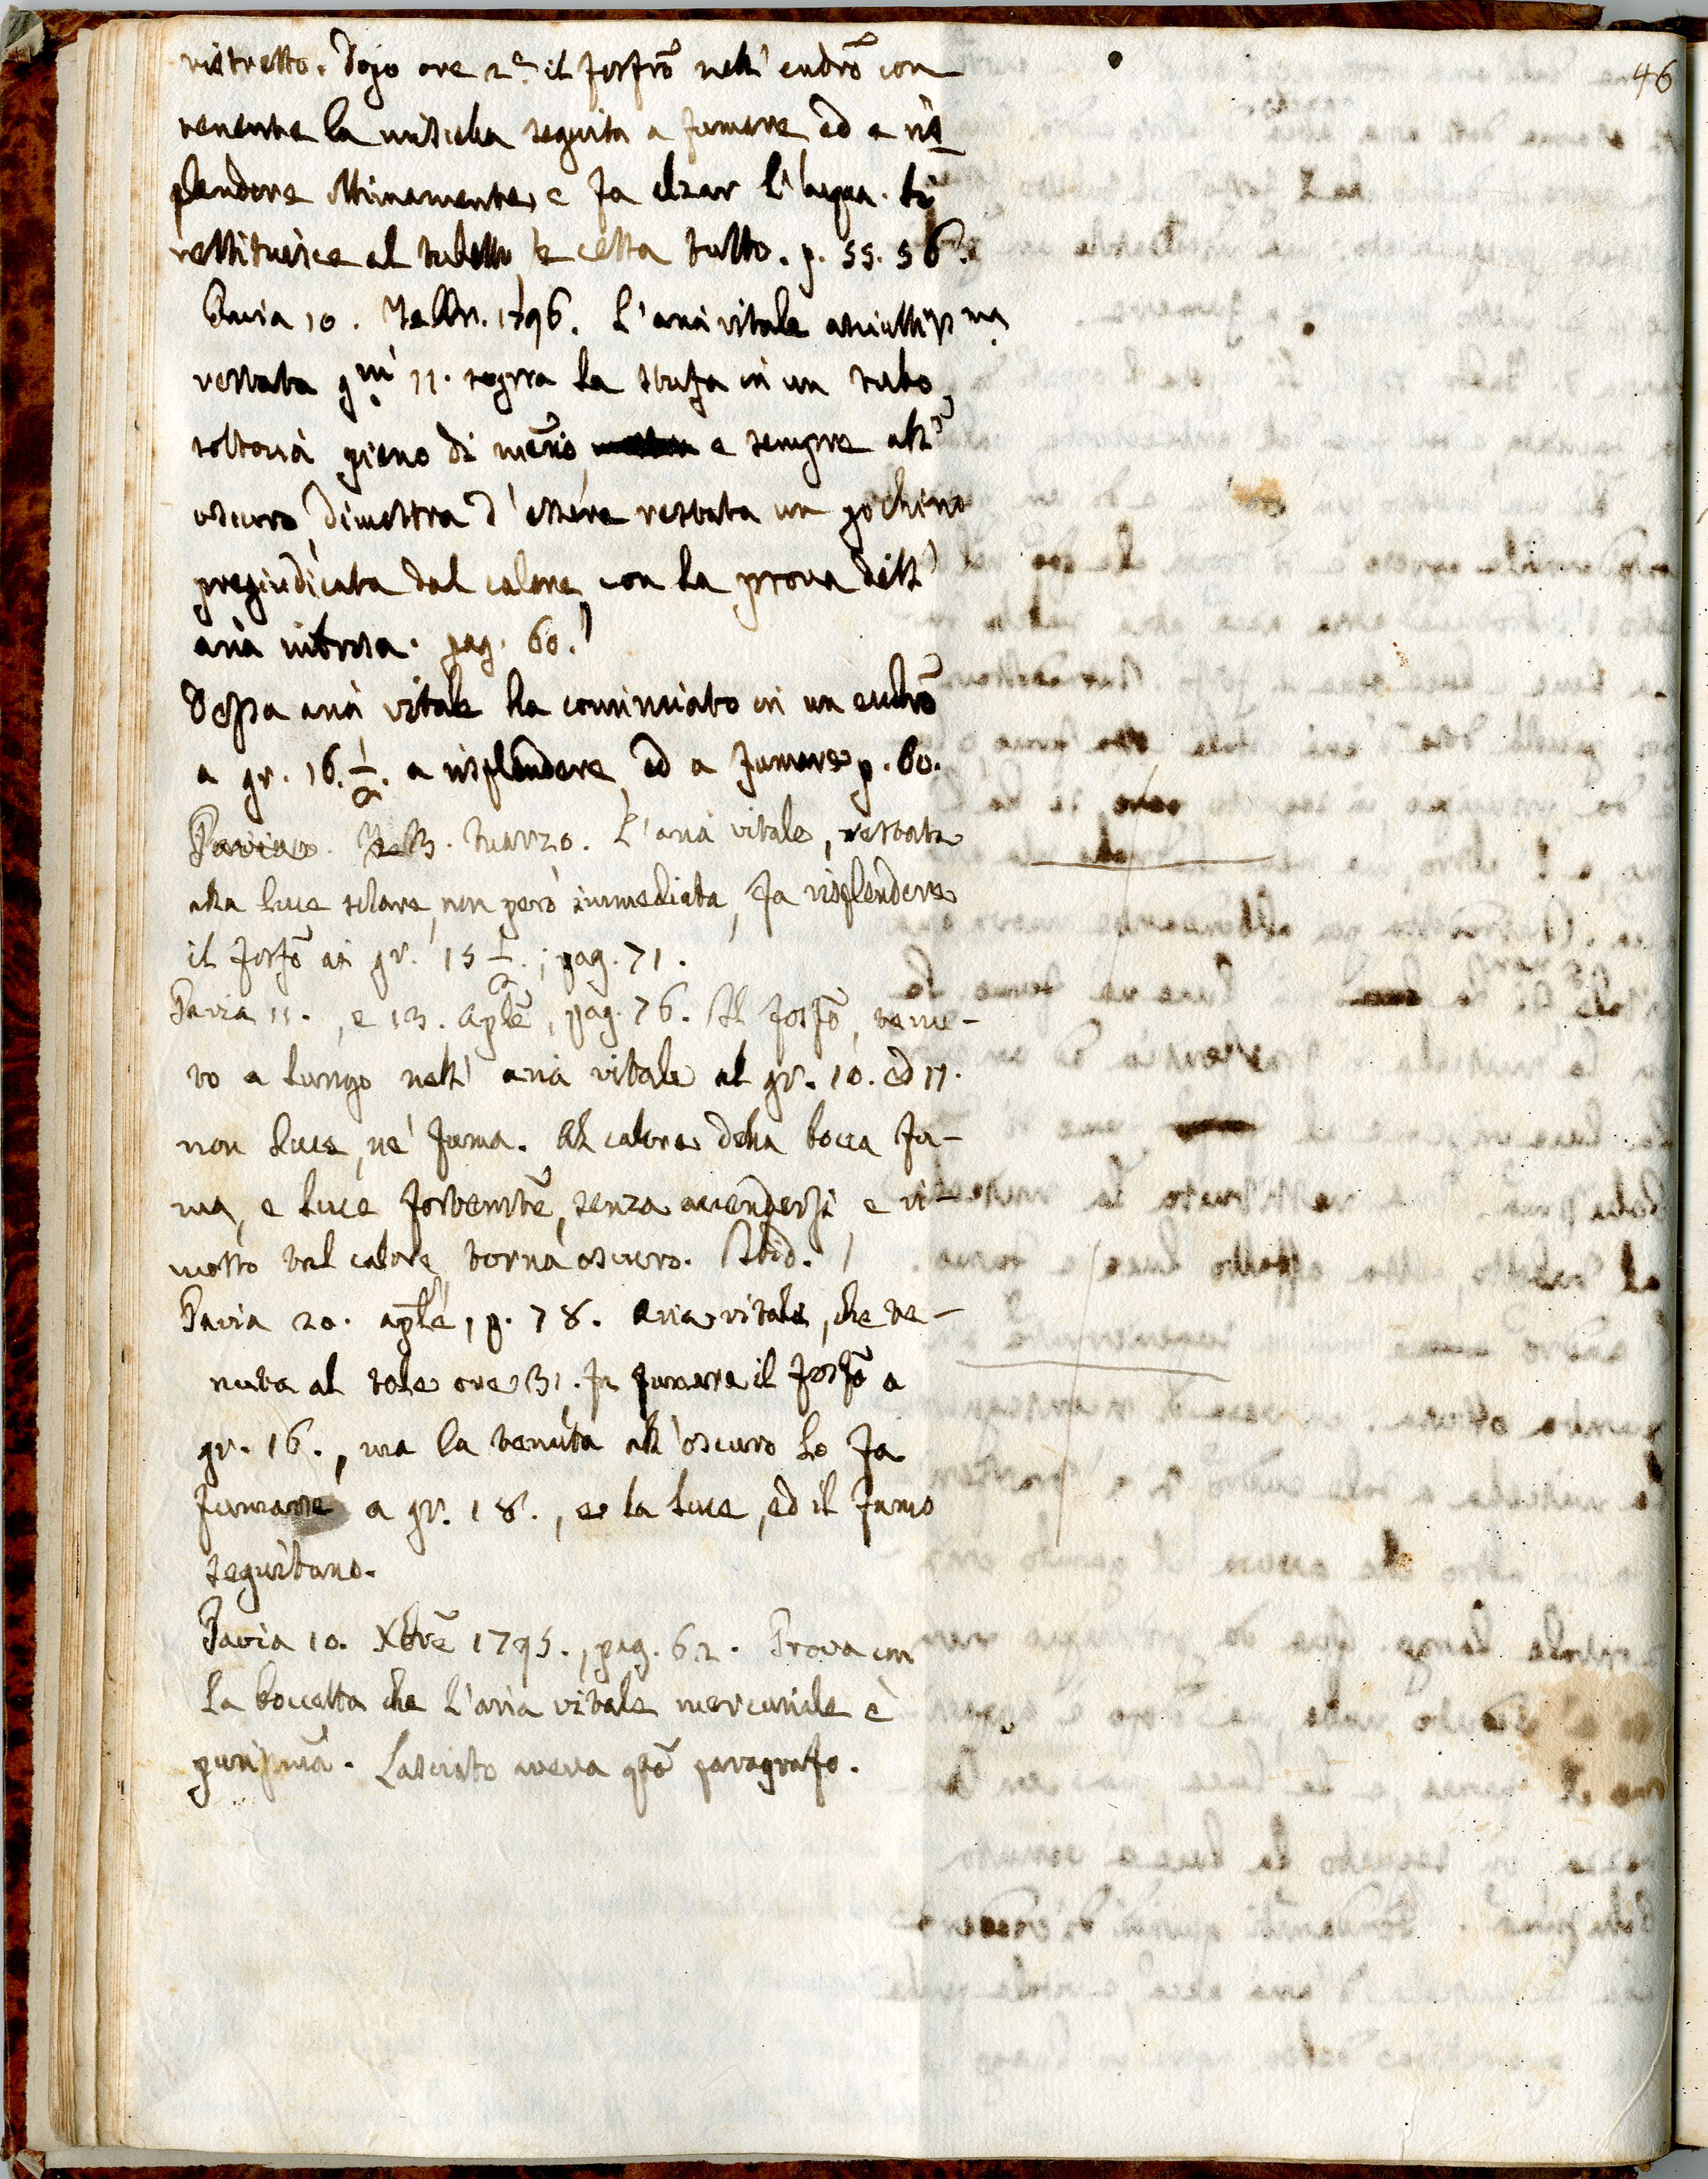 46
ristretto. Dopo ore 2.e il fosfrõ nell' eudrõ con
tenente la miscela seguita a fumare ed a ris
plendere ottimamente, e fa alzar l' acqua. Si
restituisce al tubetto, e cessa tutto. p. 55. 56.
Pavia 10. Febbr. 1796. L'aria vitale asciuttissma
restata gni 11. sopra la stufa in un tubo,
tuttavia pieno di merio e sempre all'
oscuro, dimostra d'essere restata un pochino
pregiudicata dal calore, con la prova dell'
aria nitrosa. pag. 60.
Dessa aria vitale ha cominciato in un eudrõ
a gr. 16. 1/2. a risplendere, ed a fumare p. 60.
Pavia. 3. Marzo. L'aria vitale, restata
alla luce solare, non però immediata, fa risplendere
il fosfõ ai gr. 15 1/2.; pag. 71.
Pavia 11., e 13. aplẽ, pag. 76. Il fosfõ, tenu-
to a lungo nell' aria vitale al gr. 10. ed 11.
non luce, nè fuma. Al calore della bocca fu-
ma, e luce fortemtẽ, senza accendersi, e ri-
mosso tal calore, torna oscuro. Ibid.
Pavia 20. aplẽ, p. 78. Aria vitale, che te-
nuta al sole ore 31. fa fumare il fosfõ a
gr. 16., ma la tenuta all'oscuro lo fa
fumare a gr. 18., e la luce, ed il fumo
seguitano.
Pavia 10. Xbrẽ 1795., pag. 62. Prova con
la boccetta che l'aria vitale mercuriale è
purissmã. Lasciato aveva qstõ paragrafo.